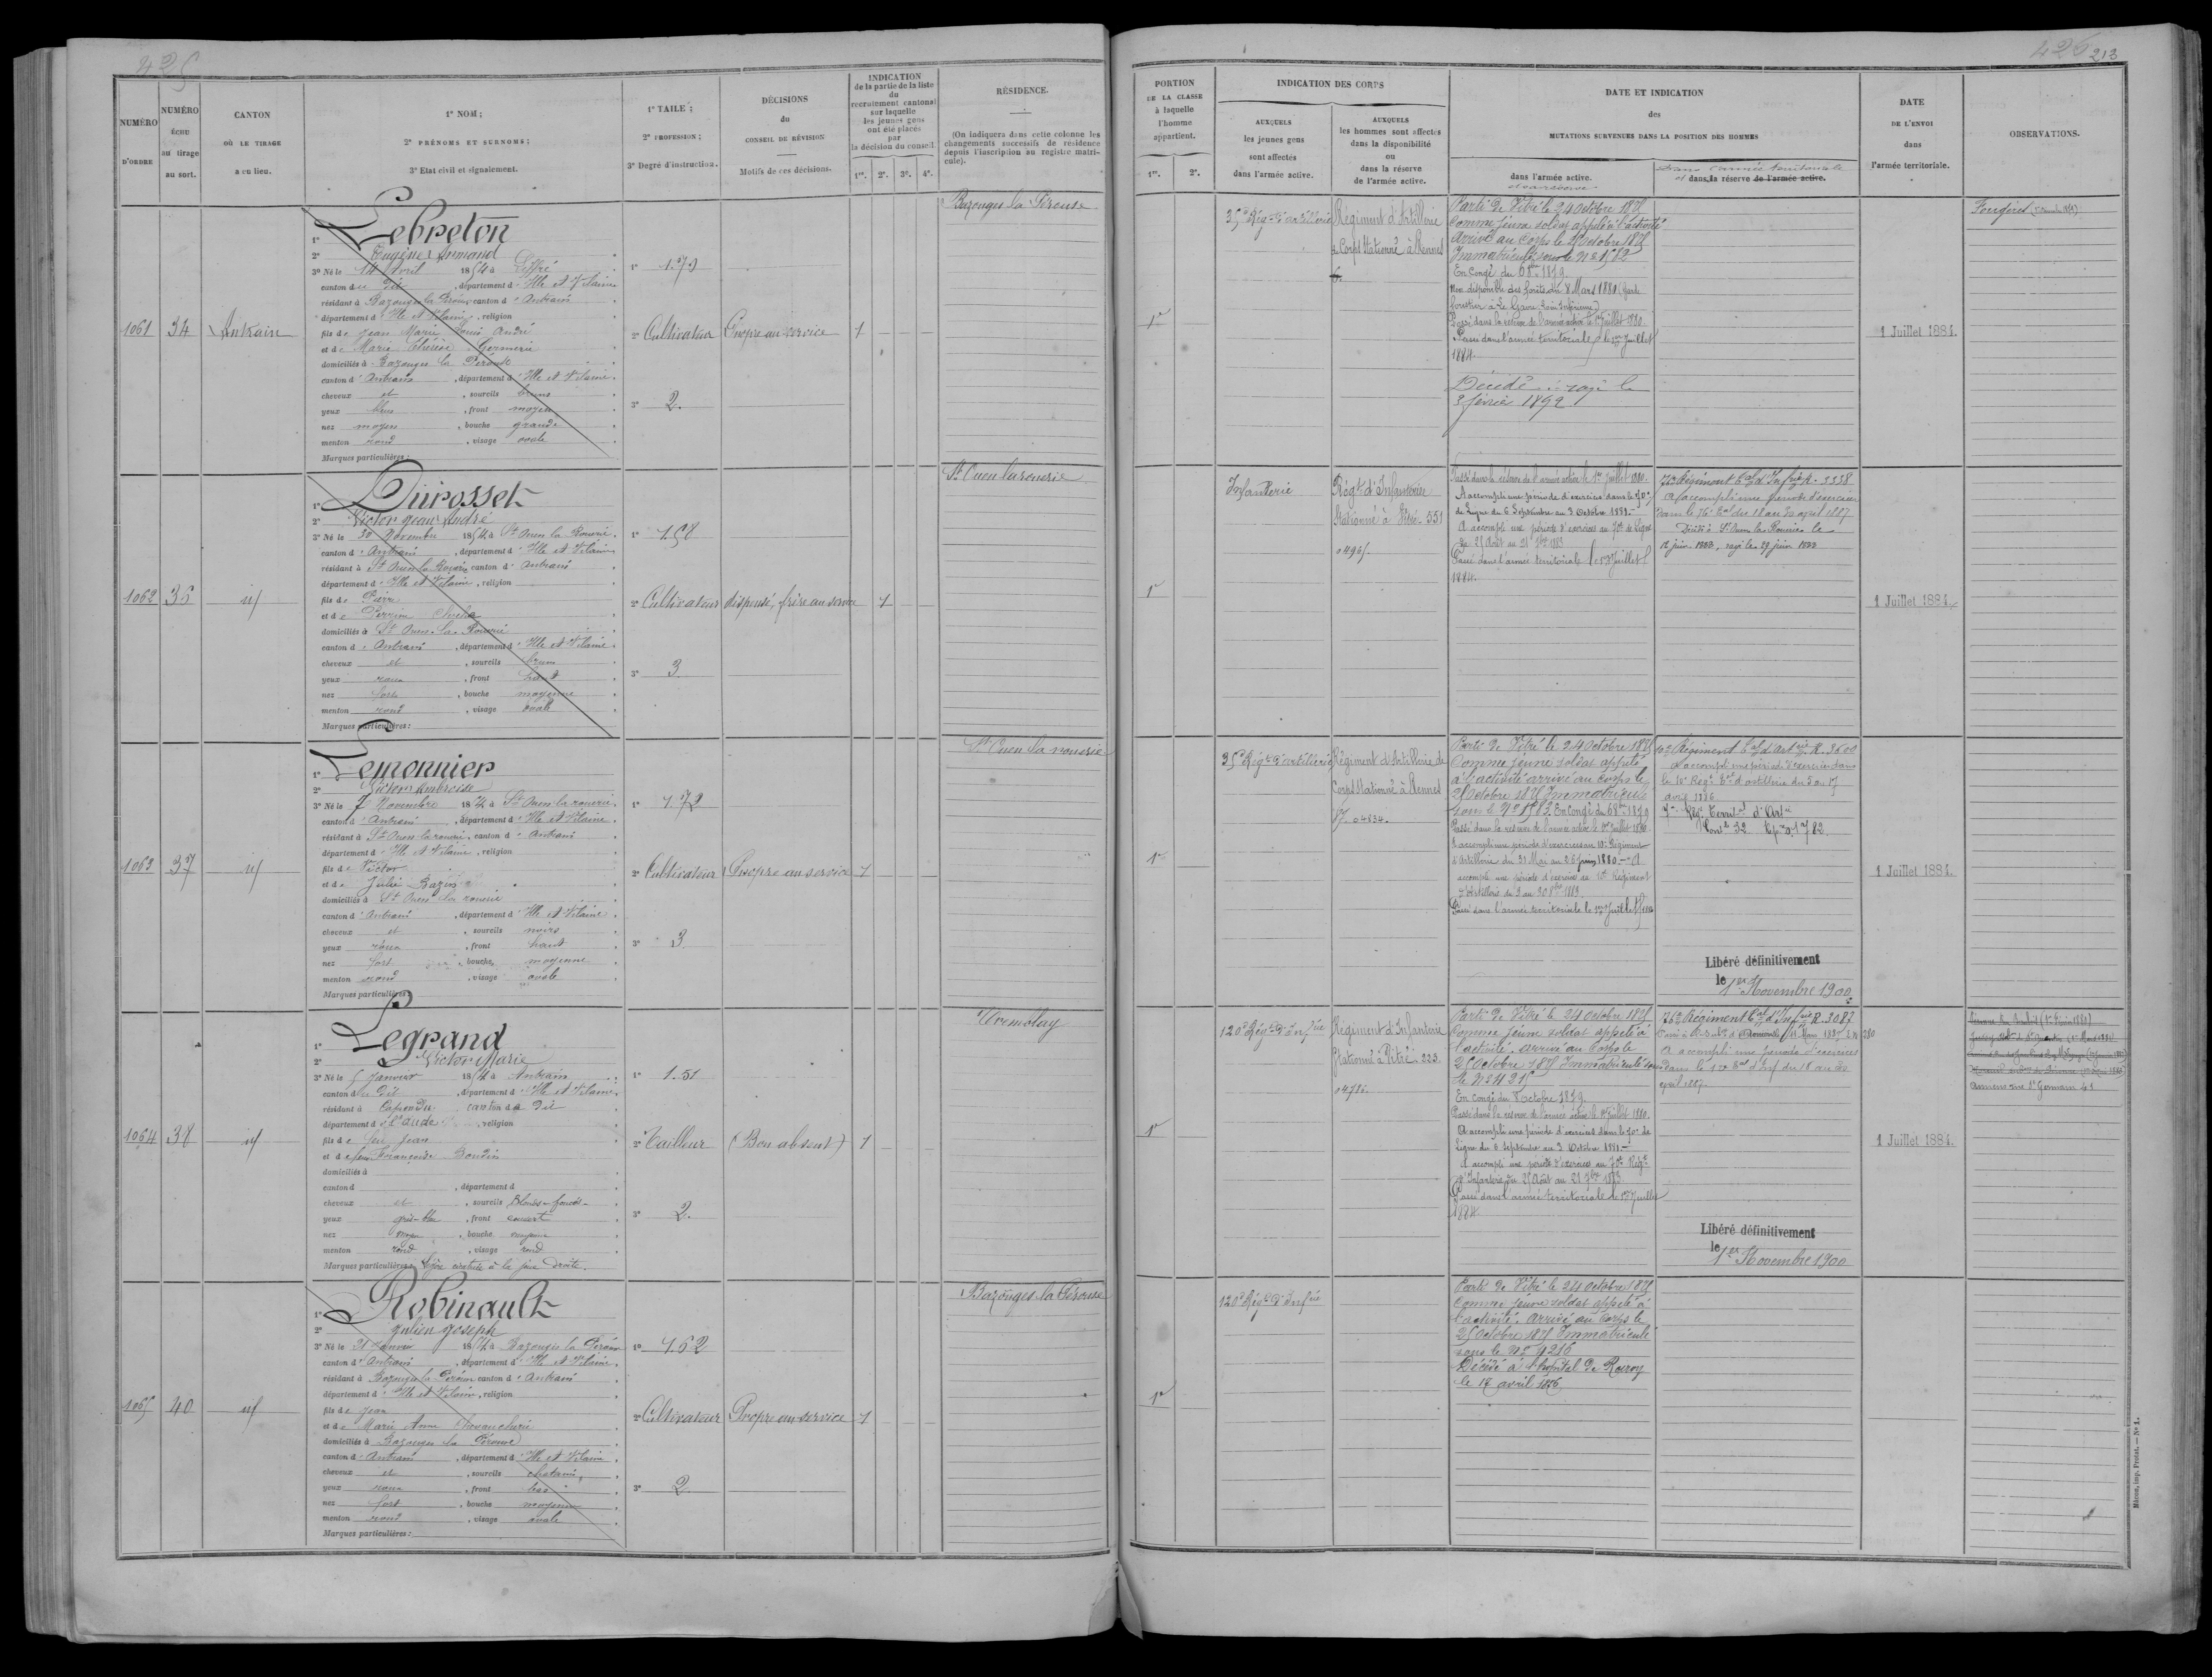 425
NUMÉRO
D'ORDRE
NUMÉRO
ÉCHU
au tirage
au sort.
CANTON
OÙ LE TIRAGE
a eu lieu.
1° NOM ;
2° PRÉNOMS ET SURNOMS ;
3° Etat civil et signalement.
1° TAILE ;
2° PROFESSION ;
3° Degré d'instruction.
DÉCISIONS
du
CONSEIL DE RÉVISION
Motifs de ces décisions.
INDICATION
de la partie de la liste
du
recrutement cantonal
sur laquelle
les jeunes gens
ont été placés
par
la décision du conseil.
1re. 2e. 3e. 4e.
RÉSIDENCE.
(On indiquera dans cette colonne les
changements successifs de résidence
depuis l'inscription au registre matri-
cule).
1061
34
Antrain
1° Lebreton
2° Eugène Armand
3° Né le 14 Avril 1854 à Liffré
canton du dit, département d'Ille et Vilaine
résidant à Bazouges la Pérouse canton d'Antrain
département d'Ille et Vilaine, religion
fils de Jean Marie Louis André
et de Marie Thérèse
domiciliés à Bazouges la Pérouse
canton d'Antrain, département d'Ille et Vilaine.
cheveux et, sourcils bruns
yeux bleus, front moyen
nez moyen, bouche grande
menton rond, visage ovale
Marques particulières :
2° Cultivateur
3° 2.
Propre au service
1
Bazouges la Pérouse
1062
35
id
1° Durosset
2° Victor Jean André
3° Né le 30 Novembre 1854 à St Ouen la Rouerie
canton d'Antrain, département d'Ille et Vilaine
résidant à St Ouen la Rouerie canton d'Antrain
département d'Ille et Vilaine, religion
fils de Pierre
et de Perrine
domiciliés à St Ouen-la-Rouerie
canton d'Antrain, département d'Ille et Vilaine.
cheveux et, sourcils brun
yeux roux, front haut
nez fort, bouche moyenne
menton rond, visage ovale
Marques particulières :
2° Cultivateur
3° 3
dispensé, frère au service
1
St Ouen la rouerie
1063
37
id
1° Lemonnier
2° Victor Ambroise
3° Né le 7 Novembre 1854 à St Ouen-la-rouerie
canton d'Antrain, département d'Ille et Vilaine.
résidant à St Ouen-la-rouerie canton d'Antrain
département d'Ille et Vilaine, religion
fils de Victor
et de Julie Bazin
domiciliés à St Ouen la rouerie
canton d'Antrain, département d'Ille et Vilaine.
cheveux et, sourcils noirs
yeux roux, front haut
nez fort, bouche moyenne
menton rond, visage ovale
Marques particulières :
1° 1.72
2° Cultivateur
3° 3
Propre au service
1
St Ouen la rouerie
1064
38
id
1° Legrand
2° Victor Marie
3° Né le 5 Janvier 1854 à Antrain
canton du Dit, département d'Ille et Vilaine
résidant à Capendu canton du Dit
département de l'Aude, religion
fils de feu Jean
et de feue Françoise
domiciliés à
canton d, département d
cheveux et, sourcils Blonds-foncés
yeux gris-bleu, front couvert
nez moyen, bouche moyenne
menton rond, visage rond
Marques particulières : légère cicatrice à la joue droite.
1° 1.51
2° Tailleur
3° 2.
(Bon absent)
1
Tremblay
1065
40
id
1° Robinault
2° Julien Joseph
3° Né le 31 Janvier 1854 à Bazouges la Pérouse
canton d'Antrain, département d'Ille et Vilaine.
résidant à Bazouges la Pérouse canton d'Antrain
département d'Ille et Vilaine, religion
fils de Jean
et de Marie Anne
domiciliés à Bazouges la Pérouse
canton d'Antrain, département d'Ille et Vilaine.
cheveux et, sourcils chatains
yeux roux, front bas
nez fort, bouche moyenne
menton rond, visage ovale
Marques particulières :
1° 1.62
2° Cultivateur
3° 2.
Propre au service
1
Bazouges la Pérouse
426 213
PORTION
DE LA CLASSE
à laquelle
l'homme
appartient.
1re. 2e.
INDICATION DES CORPS
AUXQUELS
les jeunes gens
sont affectés
dans l'armée active.
AUXQUELS
les hommes sont affectés
dans la disponibilité
ou
dans la réserve
de l'armée active.
DATE ET INDICATION
des
MUTATIONS SURVENUES DANS LA POSITION DES HOMMES
dans l'armée active.
et sa réserve
dans l'armée territoriale
et dans la réserve de l'armée active.
DATE
DE L'ENVOI
dans
l'armée territoriale.
OBSERVATIONS.
1re
35e Régt d'artillerie
Régiment d'Artillerie
de Corps Stationné à Rennes
Parti de Vitré le 24 Octobre 1875
Comme jeune soldat appelé à l'activité
Arrivé au Corps le 25 octobre 1875
Immatriculé sous le No 1582
En congé du 6 8bre 1879
Non disponible des forêts du 8 Mars 1880 (Garde
forestier à Le Gâvre Loire Inférieure)
Passé dans la réserve de l'armée active le 1er Juillet 1880.
Passé dans l'armée territoriale le 1er Juillet
1884.
Décédé rayé le
3 février 1892
1 Juillet 1884.
Fougères
1re
Infanterie
Régt d'Infanterie
Stationné à Vitré 551
Passé dans la réserve de l'armée active le 1er Juillet 1880.
A accompli une période d'exercice dans le 70e
de Ligne du 6 Septembre au 3 Octobre 1881.
A accompli une période d'exercices au 70e de Ligne
du 25 Août au 21 7bre 1883
Passé dans l'armée territoriale le 1er Juillet
1884.
76e Régiment Terral d'Infrie R. 3358
A accompli une période d'exercice
dans le 76e Teral du 18 au 30 avril 1887
Décédé à St Ouen la Rouerie le
12 juin 1888, rayé le 29 juin 1888
1 Juillet 1884.
1re
35e Régt d'artillerie
Régiment d'Artillerie de
Corps Stationné à Rennes
57. 04834.
Parti de Vitré le 24 Octobre 1875
Comme jeune soldat appelé
à l'activité arrivé au Corps le
25 Octobre 1875 Immatriculé
sous le No 1583. En Congé du 6 8bre 1879
Passé dans la réserve de l'armée active le 1er Juillet 1880.
A accompli une période d'exercices au 10e Régiment
d'Artillerie du 31 Mai au 26 Juin 1880. A
accompli une période d'exercices au 10e Régiment
d'Artillerie du 3 au 30 8bre 1883.
Passé dans l'armée territoriale le 1er Juillet 1884
10e Régiment Teral d'Artrie R. 3600
A accompli une période d'exercices dans
le 10e Régt Teral d'artillerie du 5 au 17
avril 1886
Libéré définitivement
le 1er Novembre 1900
1 Juillet 1884.
1re
120e Régt d'Infrie
Régiment d'Infanterie
Stationné à Vitré 223
Parti de Vitré le 24 Octobre 1875
Comme jeune soldat appelé à
l'activité. arrivé au Corps le
25 Octobre 1875 Immatriculé sous
le No 4215
En congé du 8 Octobre 1879.
Passé dans la réserve de l'armée active le 1er Juillet 1880.
A accompli une période d'exercices dans le 70e de
Ligne du 6 Septembre au 3 Octobre 1881.
A accompli une période d'exercices au 70e Régt
d'Infanterie du 25 Août au 21 7bre 1883
Passé dans l'armée territoriale le 1er Juillet
1884.
76e Régiment Teral d'Infrie R. 3087
A accompli une période d'exercices
dans le 12e Teral d'Inf du 18 au 30
avril 1887.
Libéré définitivement
le 1er Novembre 1900
1 Juillet 1884.
Amiens rue St Germain 41
1re
120e Régt d'Infrie
Parti de Vitré le 24 Octobre 1875
Comme jeune soldat appelé à
l'activité. Arrivé au Corps le
25 Octobre 1875 Immatriculé
sous le No 4216
Décédé à l'hopital de Rocroy
le 18 avril 1876
Mâcon, imp. Protat. — No 1.